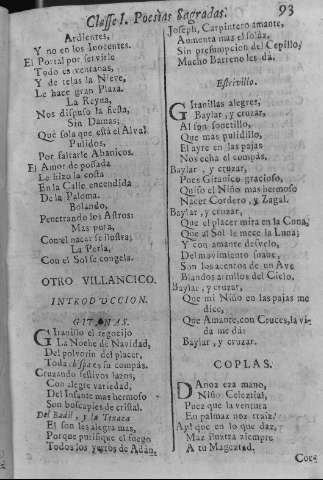 Classe I. Poesias Sagradas.
93
Ardientes,
Y no en los Inocentes.
El Portal por servirle
Todo es ventanas,
Y de telas la Nieve,
Le hace gran Plaza.
La Reyna,
Nos dispuso la fiesta,
Sin Damas;
Què sola que està el Alva!
Pulidos,
Por faltarle Abanicos.
El Amor de posada
Le hizo la costa
En la Calle encendida
De la Paloma.
Bolando,
Penetrando los Astros:
Mas pura,
Con el nacer se ilustra;
La Perla,
Con el Sol se congela.
OTRO VILLANCICO.
INTRODUCCION.
GITANAS.
Gitanillo el regocijo
La Noche de Navidad,
Del polvorin del placer,
Toda chispa es su compàs.
Cruzando festivos lazos,
Con alegre variedad,
Del Infante mas hermoso
Son boscapies de cristal.
Del Badil, y la Tenaza
Es son les alegra mas,
Porque purifique el fuego
Todos los yerros de Adàn.
Joseph, Carpintero amante,
Aumenta mas el solàz,
Sin presumpcion del Cepillo,
Mucho Barreno les dà.
Estrivillo.
Gitanillas alegres,
Baylar, y cruzar,
Al son sonetillo,
Que mas pulidillo,
El ayre en las pajas
Nos echa el compàs.
Baylar, y cruzar,
Pues Gitanico gracioso,
Quiso el Niño mas hermoso
Nacer Cordero, y Zagal.
Baylar, y cruzar,
Que el placer mira en la Cuna,
Que al Sol le mece la Luna;
Y con amante desvelo,
Del movimiento suave,
Son los acentos de un Ave
Blandos arrullos del Cielo.
Baylar, y cruzar,
Que mi Niño en las pajas me
dice,
Que Amante, con Cruces, la vi-
da me dà:
Baylar, y cruzar.
COPLAS.
Danoz eza mano,
Niño Celeztial,
Puez que la ventura
En palmaz noz traiz?
Ay! que en lo que daz,
Maz iluztra ziempre
A tu Magestad,
Cor-